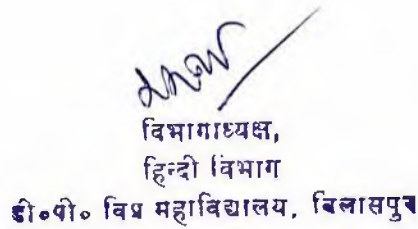 विभागाध्यक्ष,
हिन्दी विभाग
डी॰पी॰ विप्र महाविद्यालय, बिलासपुर